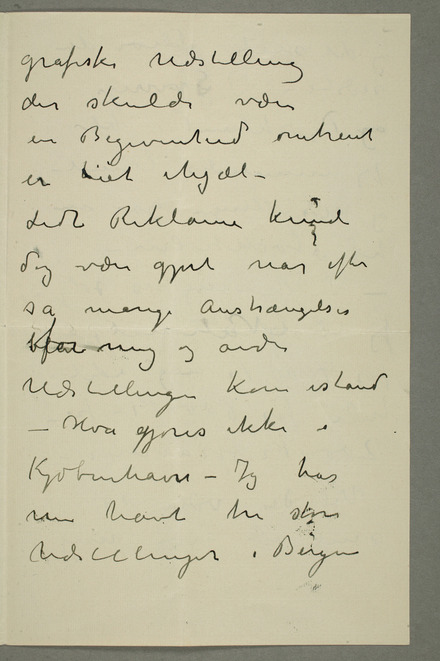 grafiske Udstilling
der skulde være
en Begivenhed omtrent
er tiet ihjæl –
Lidt Reklame kunde
dog være gjort når efter
så mange Anstrængelser
fra mig og andre
Udstillingen kom istand
– Hva gjøres ikke i
Kjøbenhavn – Jeg har
nu havt tre store
Udstillinger i Bergen